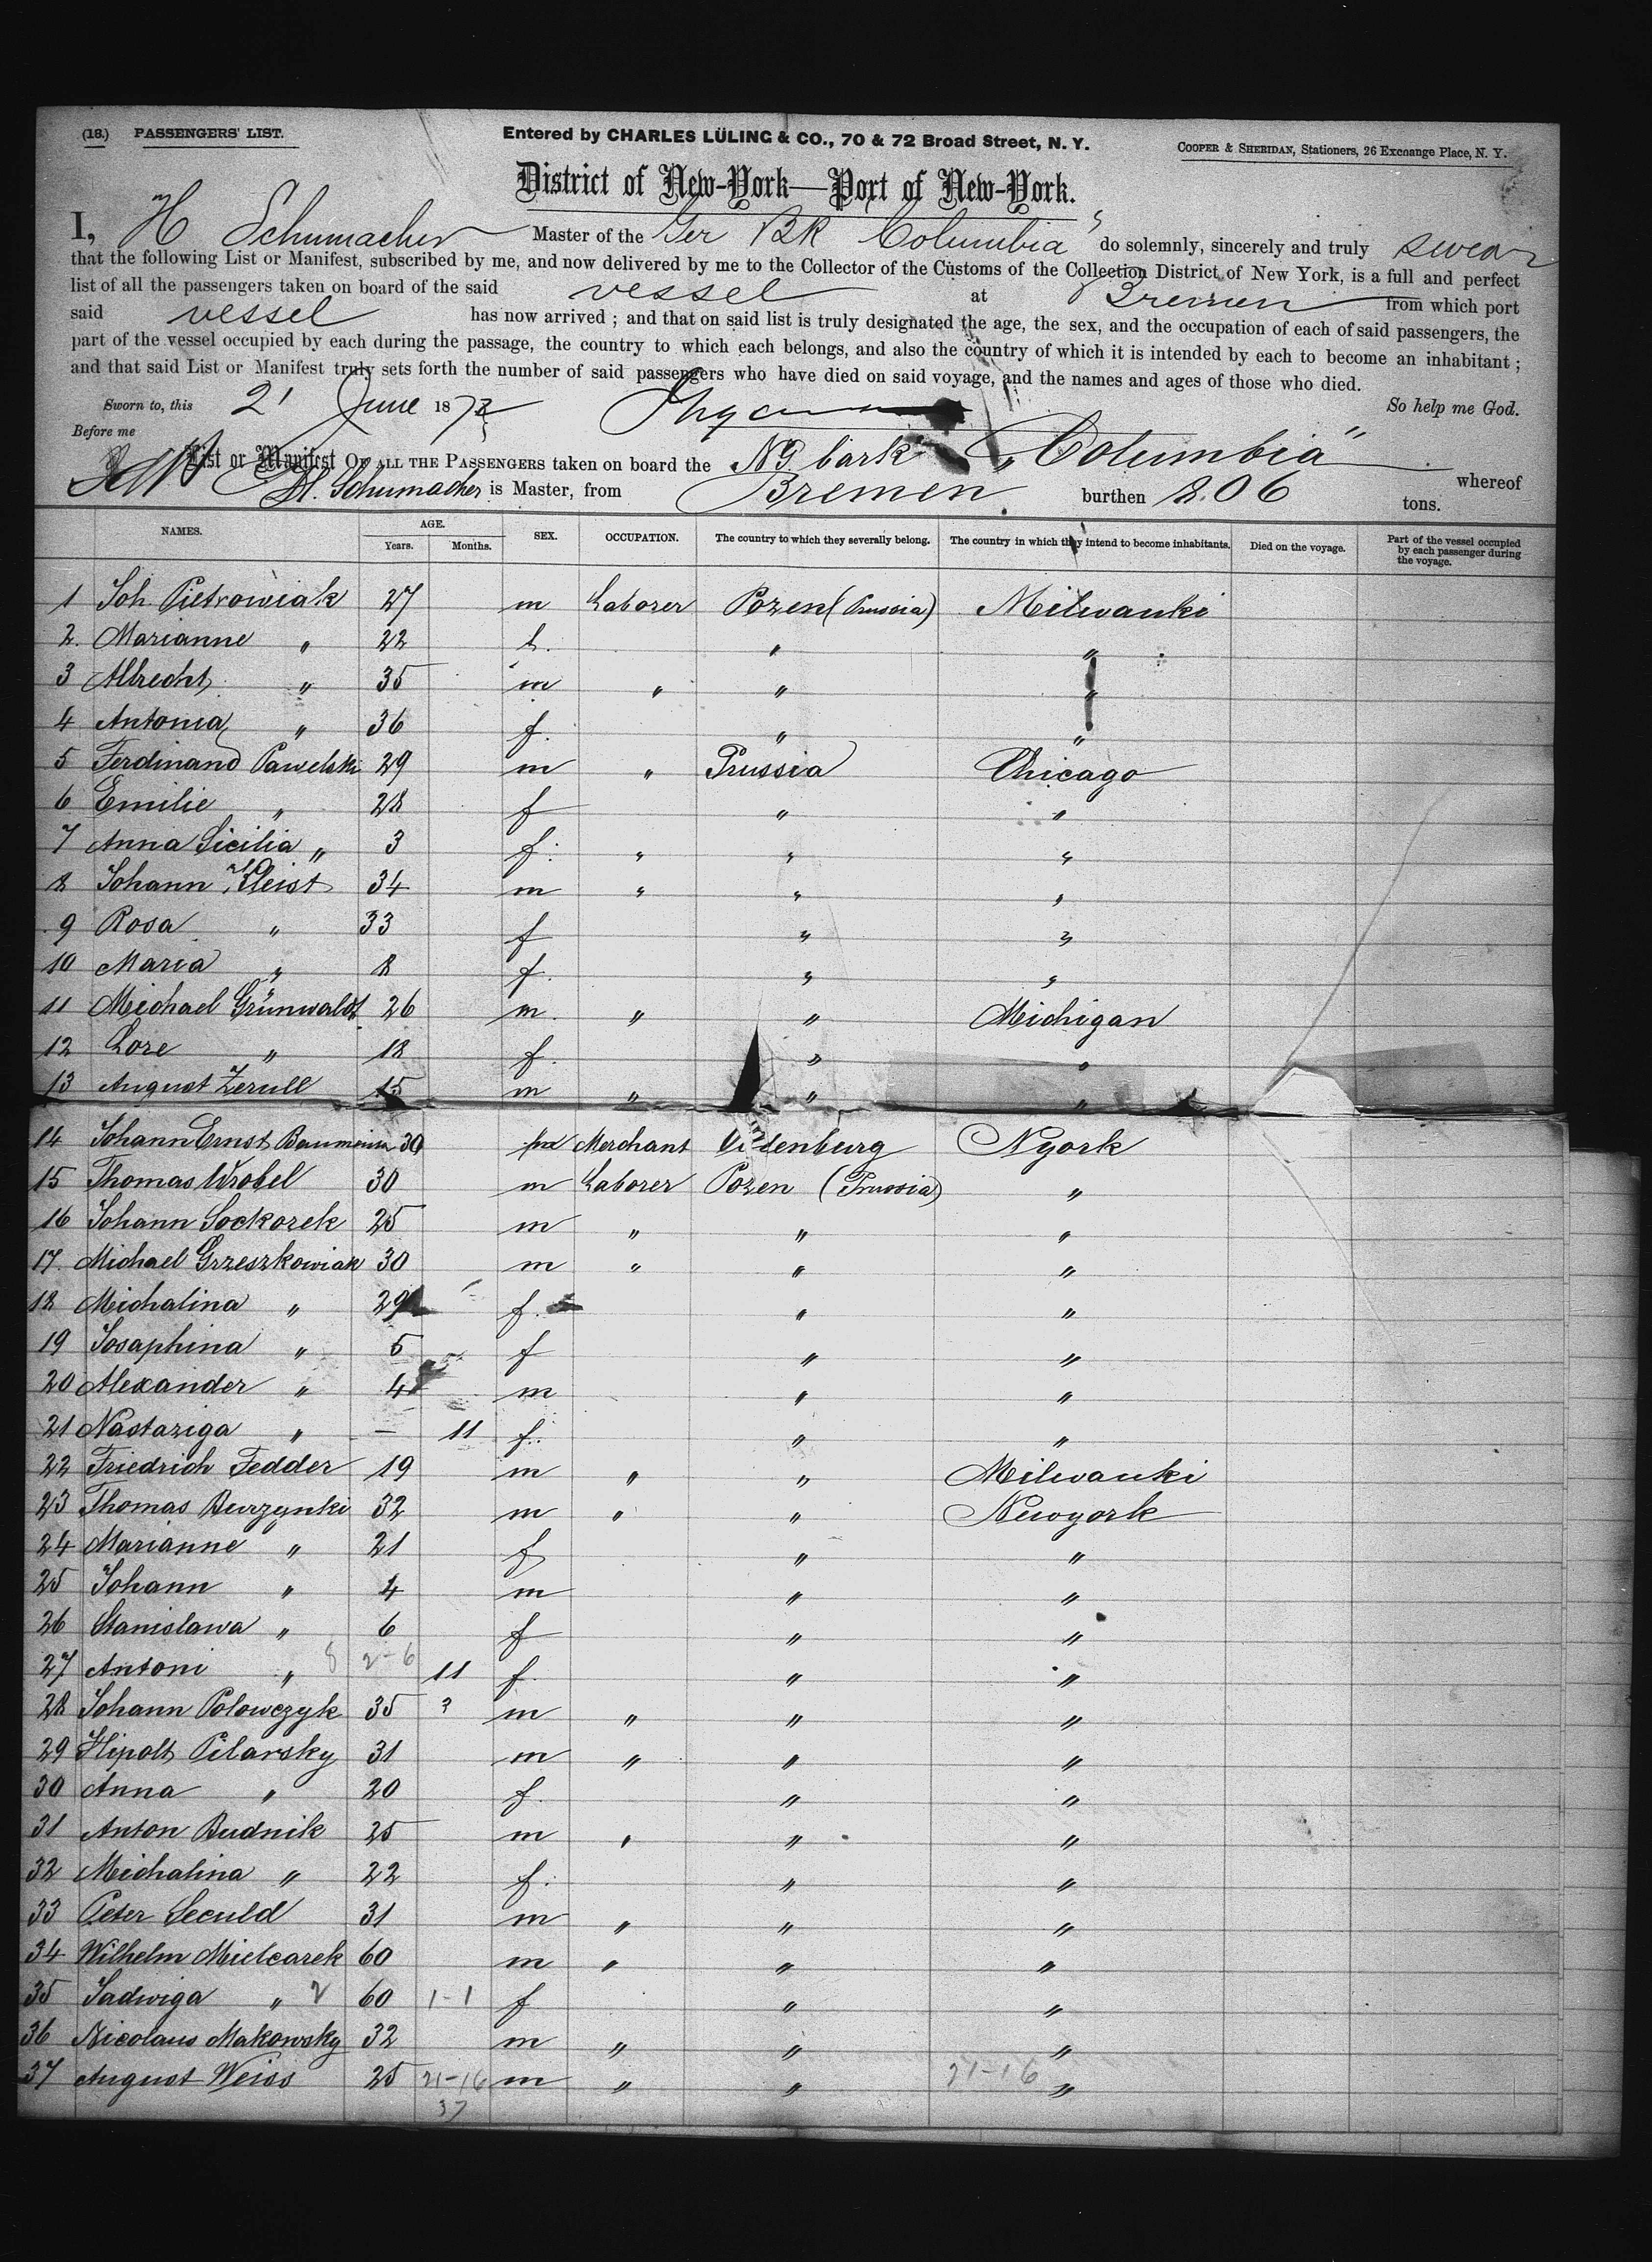 (18.) PASSENGERS' LIST.
Entered by CHARLES LÜLING & CO., 70 & 72 Broad Street, N. Y.
COOPER & SHERIDAN, Stationers, 26 Exchange Place, N. Y.
District of New-York—Port of New-York.
I, H Schumacher Master of the Ger Bk "Columbia" do solemnly, sincerely and truly swear
that the following List or Manifest, subscribed by me, and now delivered by me to the Collector of the Customs of the Collection District of New York, is a full and perfect
list of all the passengers taken on board of the said vessel at Bremen from which port
said vessel has now arrived ; and that on said list is truly designated the age, the sex, and the occupation of each of said passengers, the
part of the vessel occupied by each during the passage, the country to which each belongs, and also the country of which it is intended by each to become an inhabitant ;
and that said List or Manifest truly sets forth the number of said passengers who have died on said voyage, and the names and ages of those who died.
Sworn to, this 21 June 187 So help me God.
Before me
List or Manifest OF ALL THE PASSENGERS taken on board the NG bark "Columbia" whereof
H. Schumacher is Master, from Bremen, burthen 806 tons.
NAMES. AGE. Years. Months. SEX. OCCUPATION. The country to which they severally belong. The country in which they intend to become inhabitants. Died on the voyage. Part of the vessel occupied by each passenger during the voyage.
1 Joh. Pietrowiak 27 m Laborer Pozen (Prussia) Milwauki
2. Marianne " 22 f. " "
3 Albrecht " 35 m " " "
4 Antonia " 36 f. " "
5 Ferdinand Pawelski 29 m " Prussia Chicago
6 Emilie " 28 f " "
7 Anna Cicilia " 3 f. " " "
8 Johann Kleist 34 m " " "
9 Rosa " 33 f " "
10 Maria " 8 f. " "
11 Michael Grünwaldt 26 m. " " Michigan
12 Lore " 18 f. " "
13 August Zerull 15 m " " "
14 Johann Ernst 30 m Merchant N york
15 Thomas Wrobel 30 m Laborer Pozen (Prussia) "
16 Johann Sockorek 25 m " " "
17. Michael Grzeszkowiak 30 m " " "
18 Michalina " 29 f. " "
19 Josaphina " 5 f " "
20 Alexander " 4 m " "
21 Nastaziga " — 11 f. " "
22 Friedrich Fedder 19 m " " Milwauki
23 Thomas Burzynki 32 m " " Newyork
24 Marianne " 21 f " "
25 Johann " 4 m " "
26 Stanislawa " 6 f " "
27 Antoni " 8 2-6 11 f. " "
28 Johann Polowczyk 35 m " " "
29 Hipolt Pilarsky 31 m " " "
30 Anna " 20 f. " "
31 Anton Budnik 25 m " " "
32 Michalina " 22 f. " "
33 Peter Seculd 31 m " " "
34 Wilhelm Mielcarek 60 m " " "
35 Jadwiga " 2 60 1-1 f " "
36 Nicolaus Makowsky 32 m " " "
37 August Weiss 25 21-16 m " " 21-16 "
37